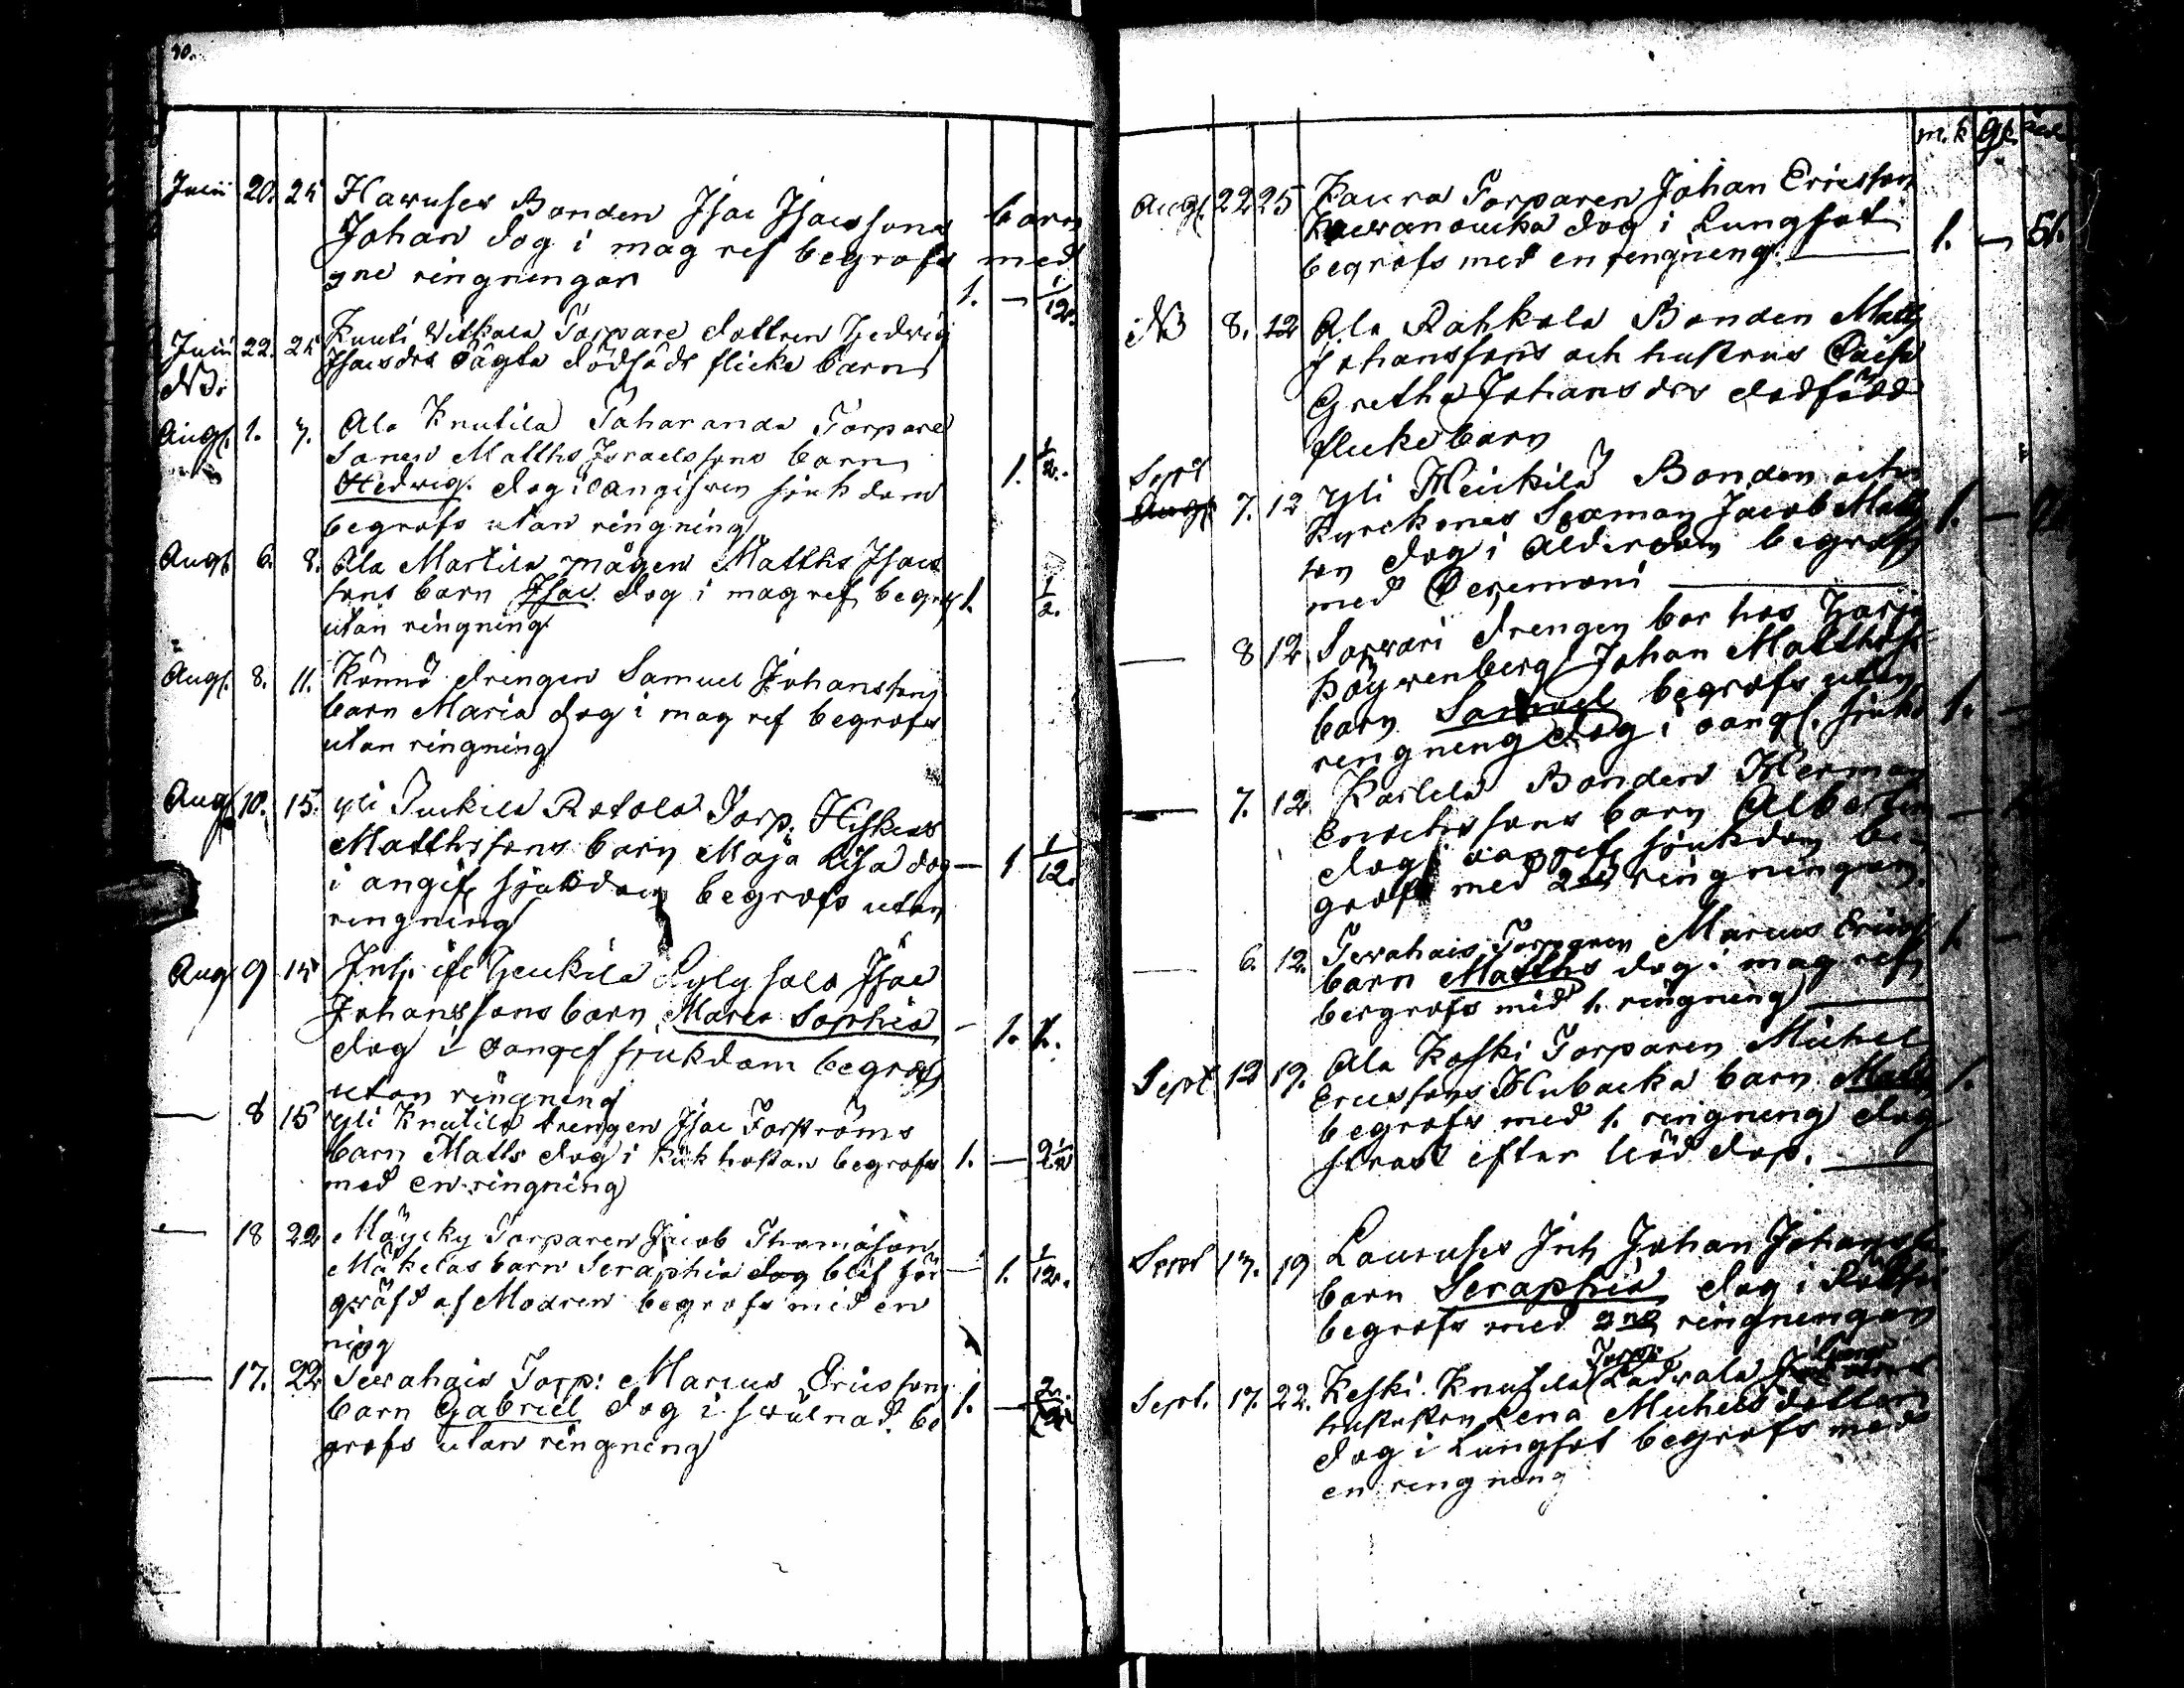 Junii 20. 25 Haruses Bonden Isac Isacssons barn
Johan dog i mag ref begrofs med
2ne ringningar 1. — 1/12.
Junii 22. 25 Knuti Torpare dottren Hedwig
NB. Isacsdrs oägta dödfödt flicke barn
Aug. 1. 7. Ala Knutila Torpare
Sonen Matths Israelssons barn 1. 1/2.
Hedwig. dog i oangifwen sjukdom
begrofs utan ringning
Aug. 6. 8. Ala Martila mågen Matths Isacs
sons barn Isac dog i mag ref begrofs 1. 1/2.
utan ringning
Aug. 8. 11. Könnö drengen Samuel Johanssons
barn Maria dog i mag ref begrofs
utan ringning
Aug. 10. 15. Yli Juckila Rotola Torp:
Matthssons barn Maja Lisa dog — 1 1/12.
i angif sjukdom begrofs utan
ringning
Aug 9 15 Inh. Isac
Johanssons barn Maria Sophia — 1. 1.
dog i oangif sjukdom begrofs
utan ringning
— 8 15 Yli Knutila drengen Isac Forströms
barn Matts dog i kikhostan begrofs 1. — 2 1/2
med en ringning
— 18 22 Möycky Torparen Jacob Thomasson
Mäkeläs barn Seraphia dog blef för — 1. 1/12.
qwäfd af Modren begrofs med en
ning
— 17. 22 Tewahais Torp: Marcus Ericssons
barn Gabriel dog i swulnad. be 1. —
grofs utan ringning
m.k qk.
Aug. 22 25 Kaura Torparen Johan Ericsson
dog i Lungsot 1. — 51.
begrofs med en ringning. —
NB 8. 12 Ala Rahkola Bonden Matts
Johanssons och hustrus Caisa
Gretha Johansdrs dödfödd
flicke barn
Sept
Aug. 7. 12 Yli Heickilä Bonden och
Kyrckones Sexman Jacob Matts 1. —
son dog i Alderdom begrofs
med Ceremoni —
— 8 12 Sorvari drengen bor hos Harju
Johan Matthss.
barn Samuel begrofs utan
ringning dog i oangf. sjukd 1. —
— 7. 12 Karlela Bonden Herman
Enochssons barn Albertina —
dog i oangif sjukdom be-
grofs med 2ne ringningar.
— 6. 12. Tewahais Torparen Marcus Erics 1. —
barn Matths dog i mag ref
bergrofs med 1. ringning —
Sept 12 19. Ala Koski Torparen Michel
Ericssons Hubacka barn Matts 1.
begrofs med 1. ringning dog
strax efter Nöd dop. —
Sept 17. 19 Lauruses Inh Johan Johanss.
barn Seraphia dog i
begrofs med 2ne ringningar
Torp:
Sept. 17. 22. Keski Knutila Ladvala
Lena Michelsdotter
dog i Lungsot begrofs med
en ringning